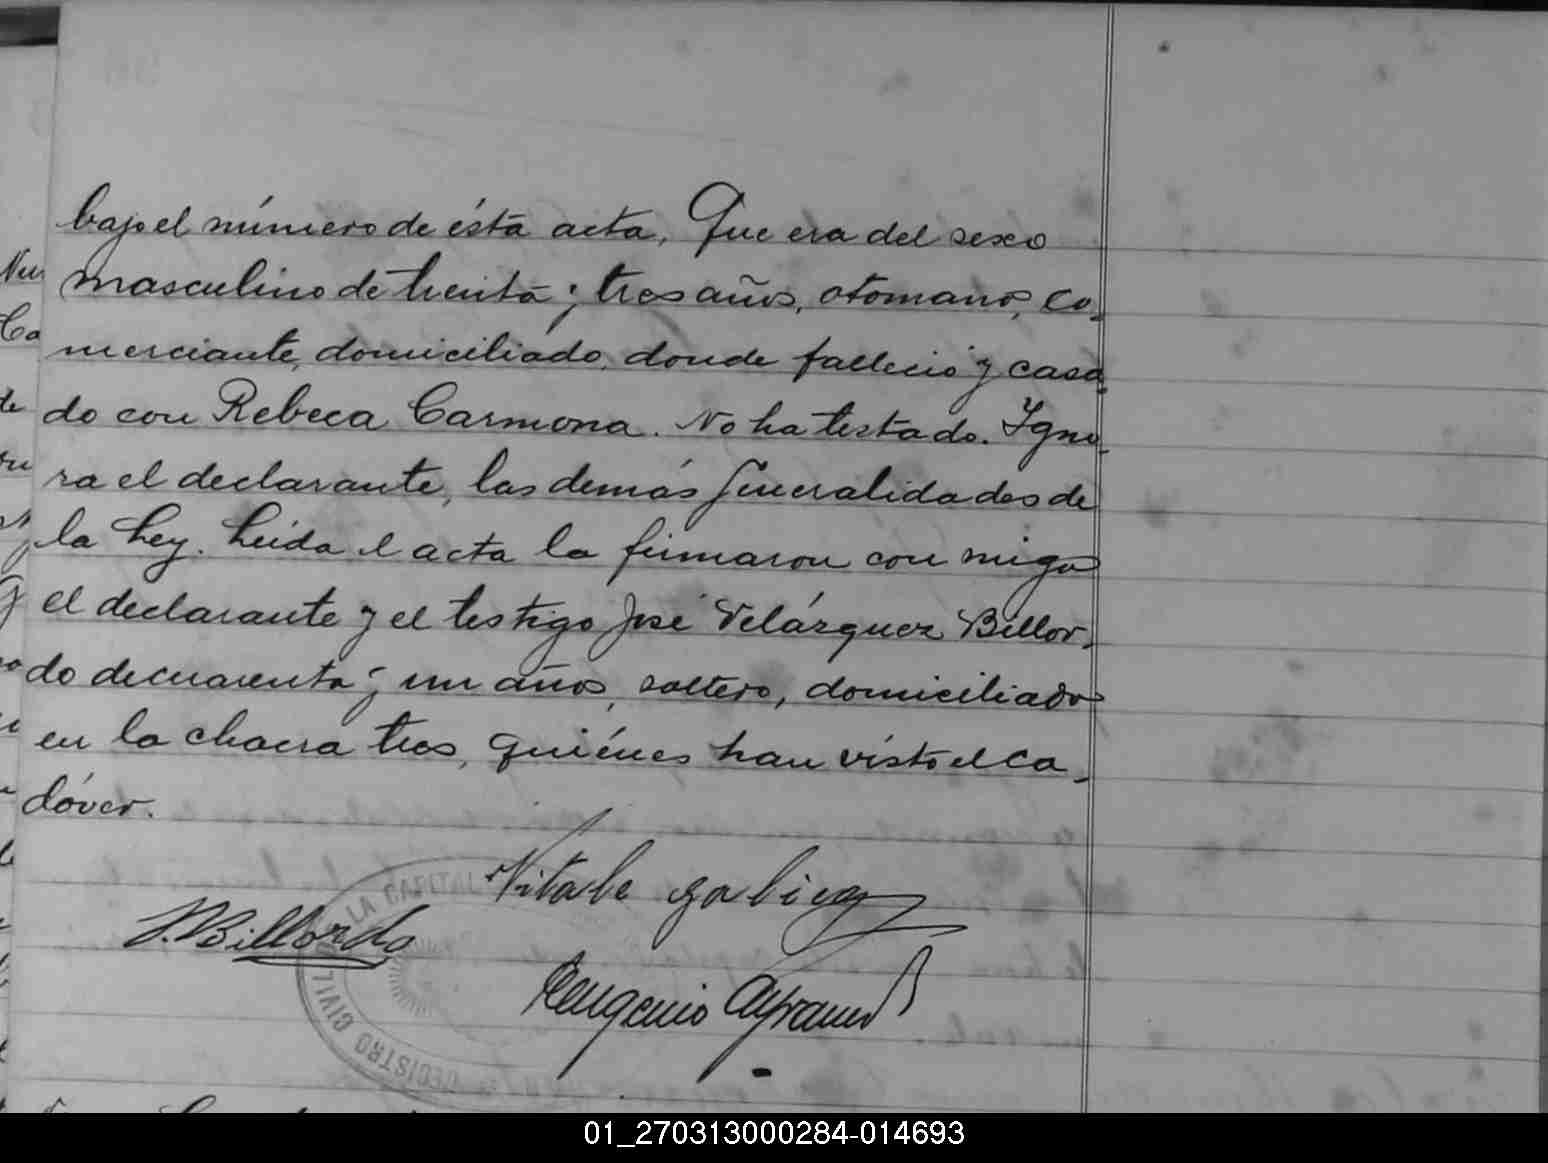 bajo el número de ésta acta. Que era del sexo
masculino de treinta y tres años, otomano, co-
merciante, domiciliado donde falleció y casa-
do con Rebeca Carmona. No ha testado. Igno-
ra el declarante, las demás generalidades de
la Ley. Leída el acta la firmaron con migo
el declarante y el testigo José Velázquez Billor-
do de cuarenta y un años, soltero, domiciliado
en la chacra tres, quiénes han visto el ca-
dáver.
Vitale
J. Billordo
Eugenio
REGISTRO CIVIL DE LA CAPITAL
01_270313000284-014693